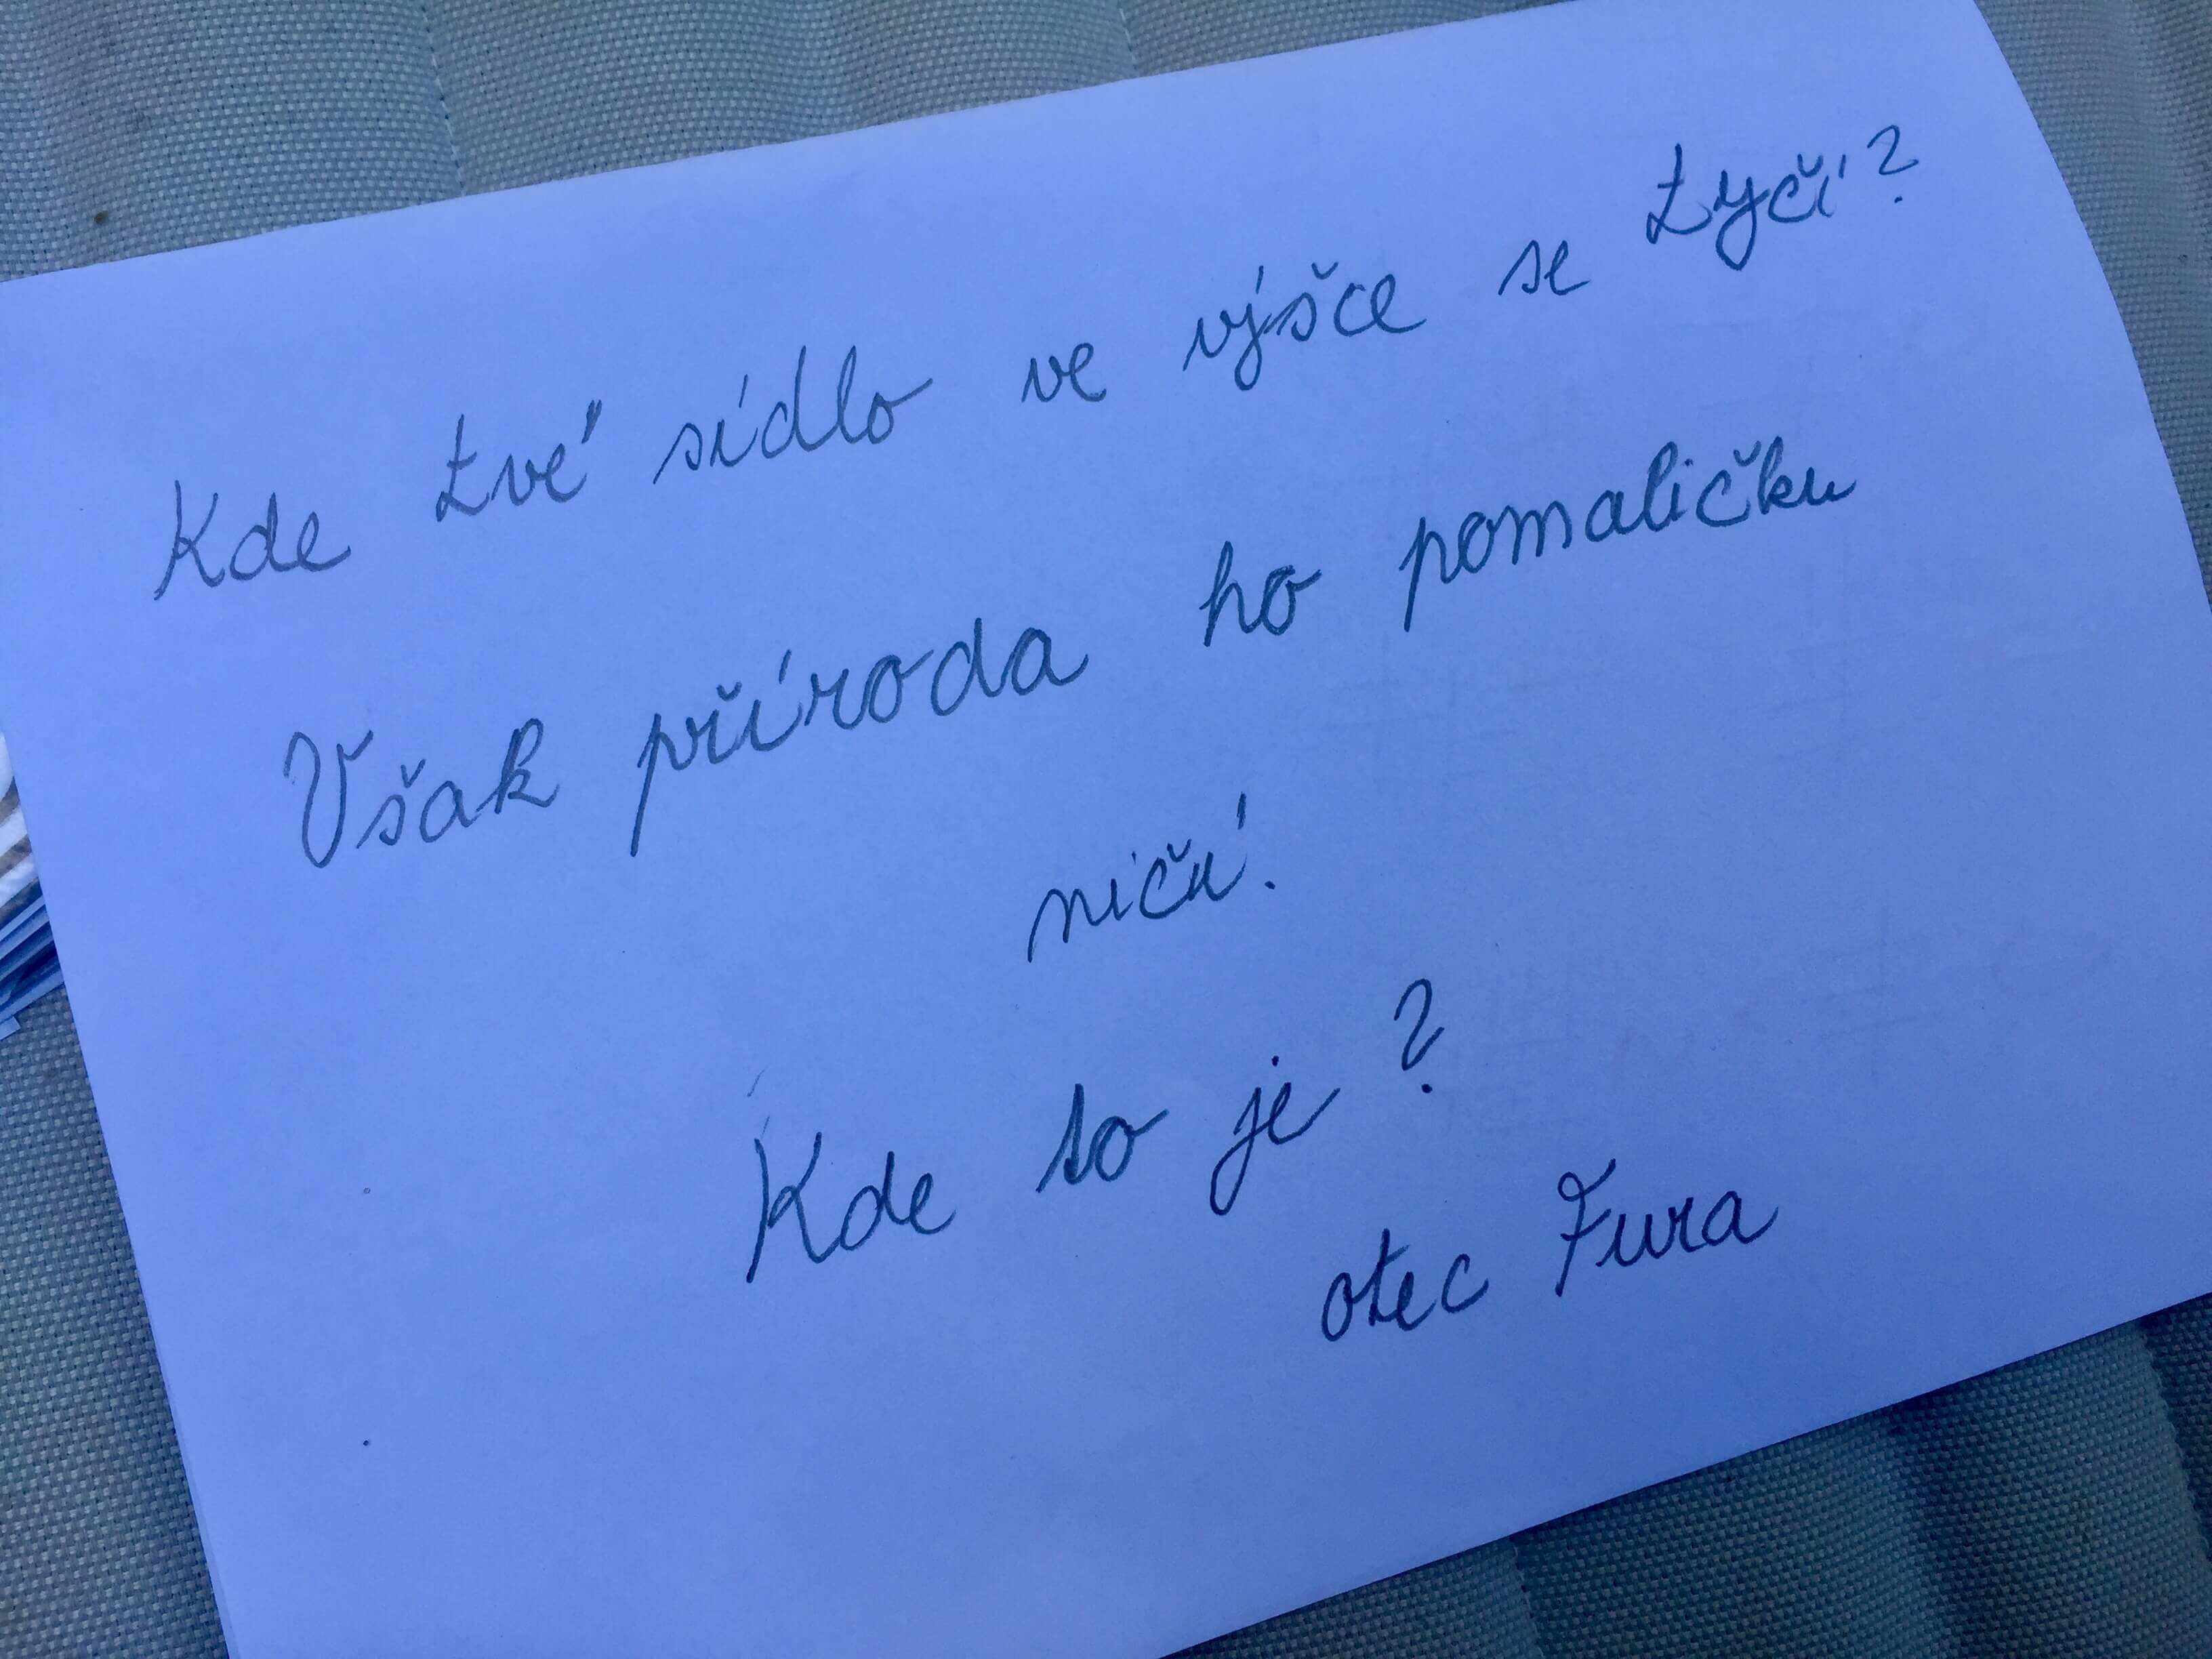 Kde tvé sídlo ve výšce se tyčí?
Však příroda ho pomaličku
ničí.
Kde to je?
otec Fura